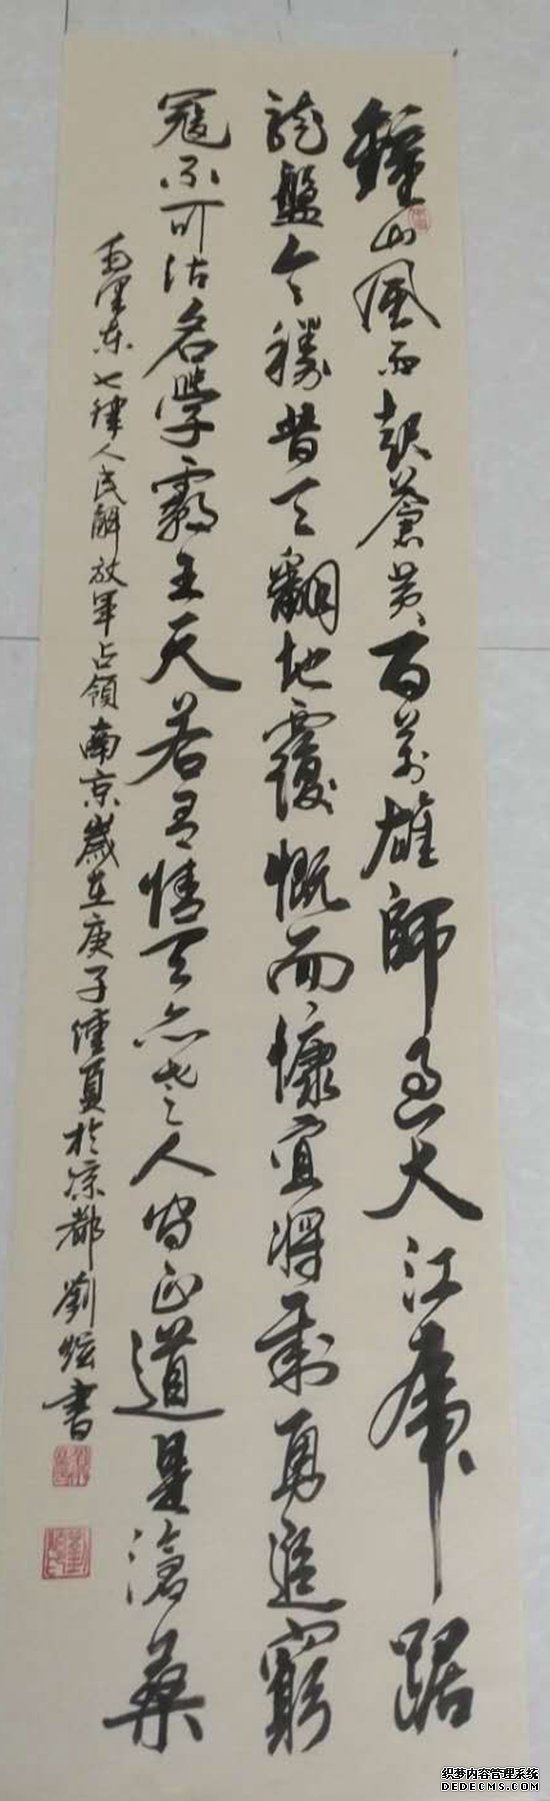 鐘山風雨起蒼黄百萬雄師過大江虎踞
龍盤今勝昔天翻地覆慨而慷宜將剩勇追窮
寇不可沽名學霸王天若有情天亦老人間正道是滄桑
毛澤東七律人民解放軍占領南京歲在庚子仲夏於涼都劉炫書
织梦内容管理系统
DEDECMS.COM